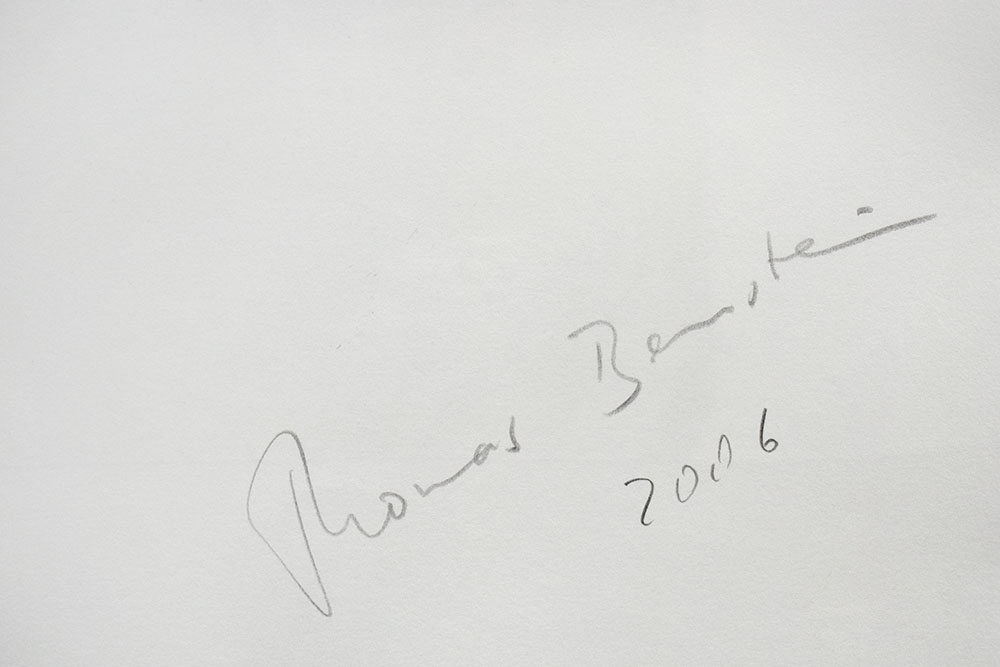 Thomas Bernstein
2006